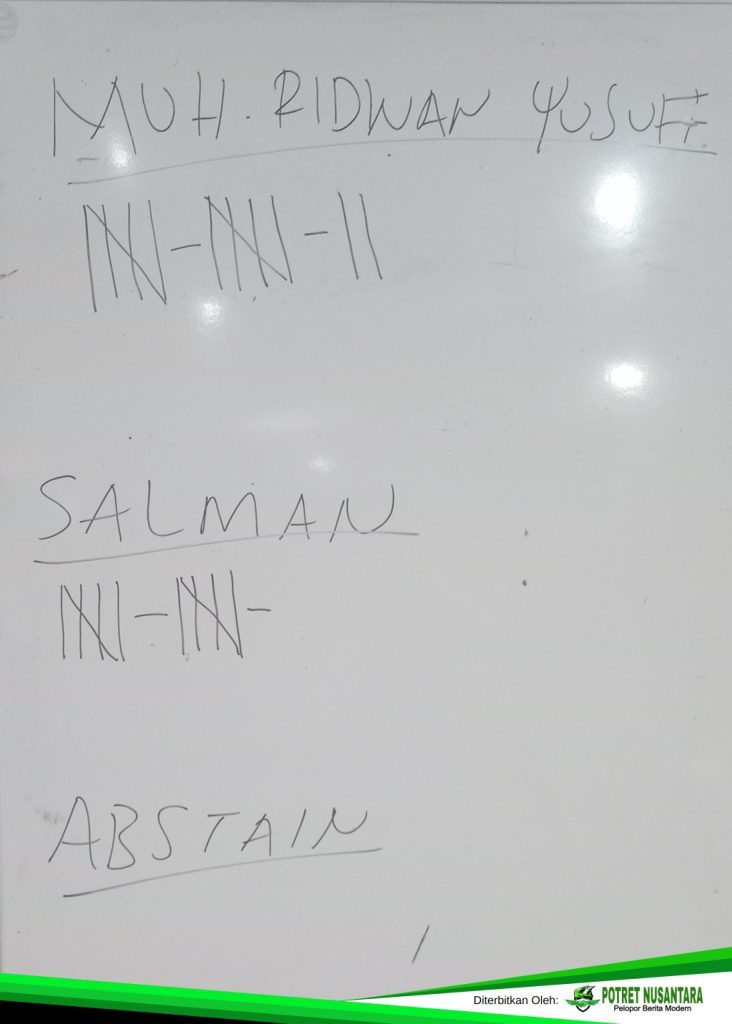 MUH. RIDWAN YUSUF
SALMAN
ABSTAIN
Diterbitkan Oleh:
POTRET NUSANTARA
Pelopor Berita Modern